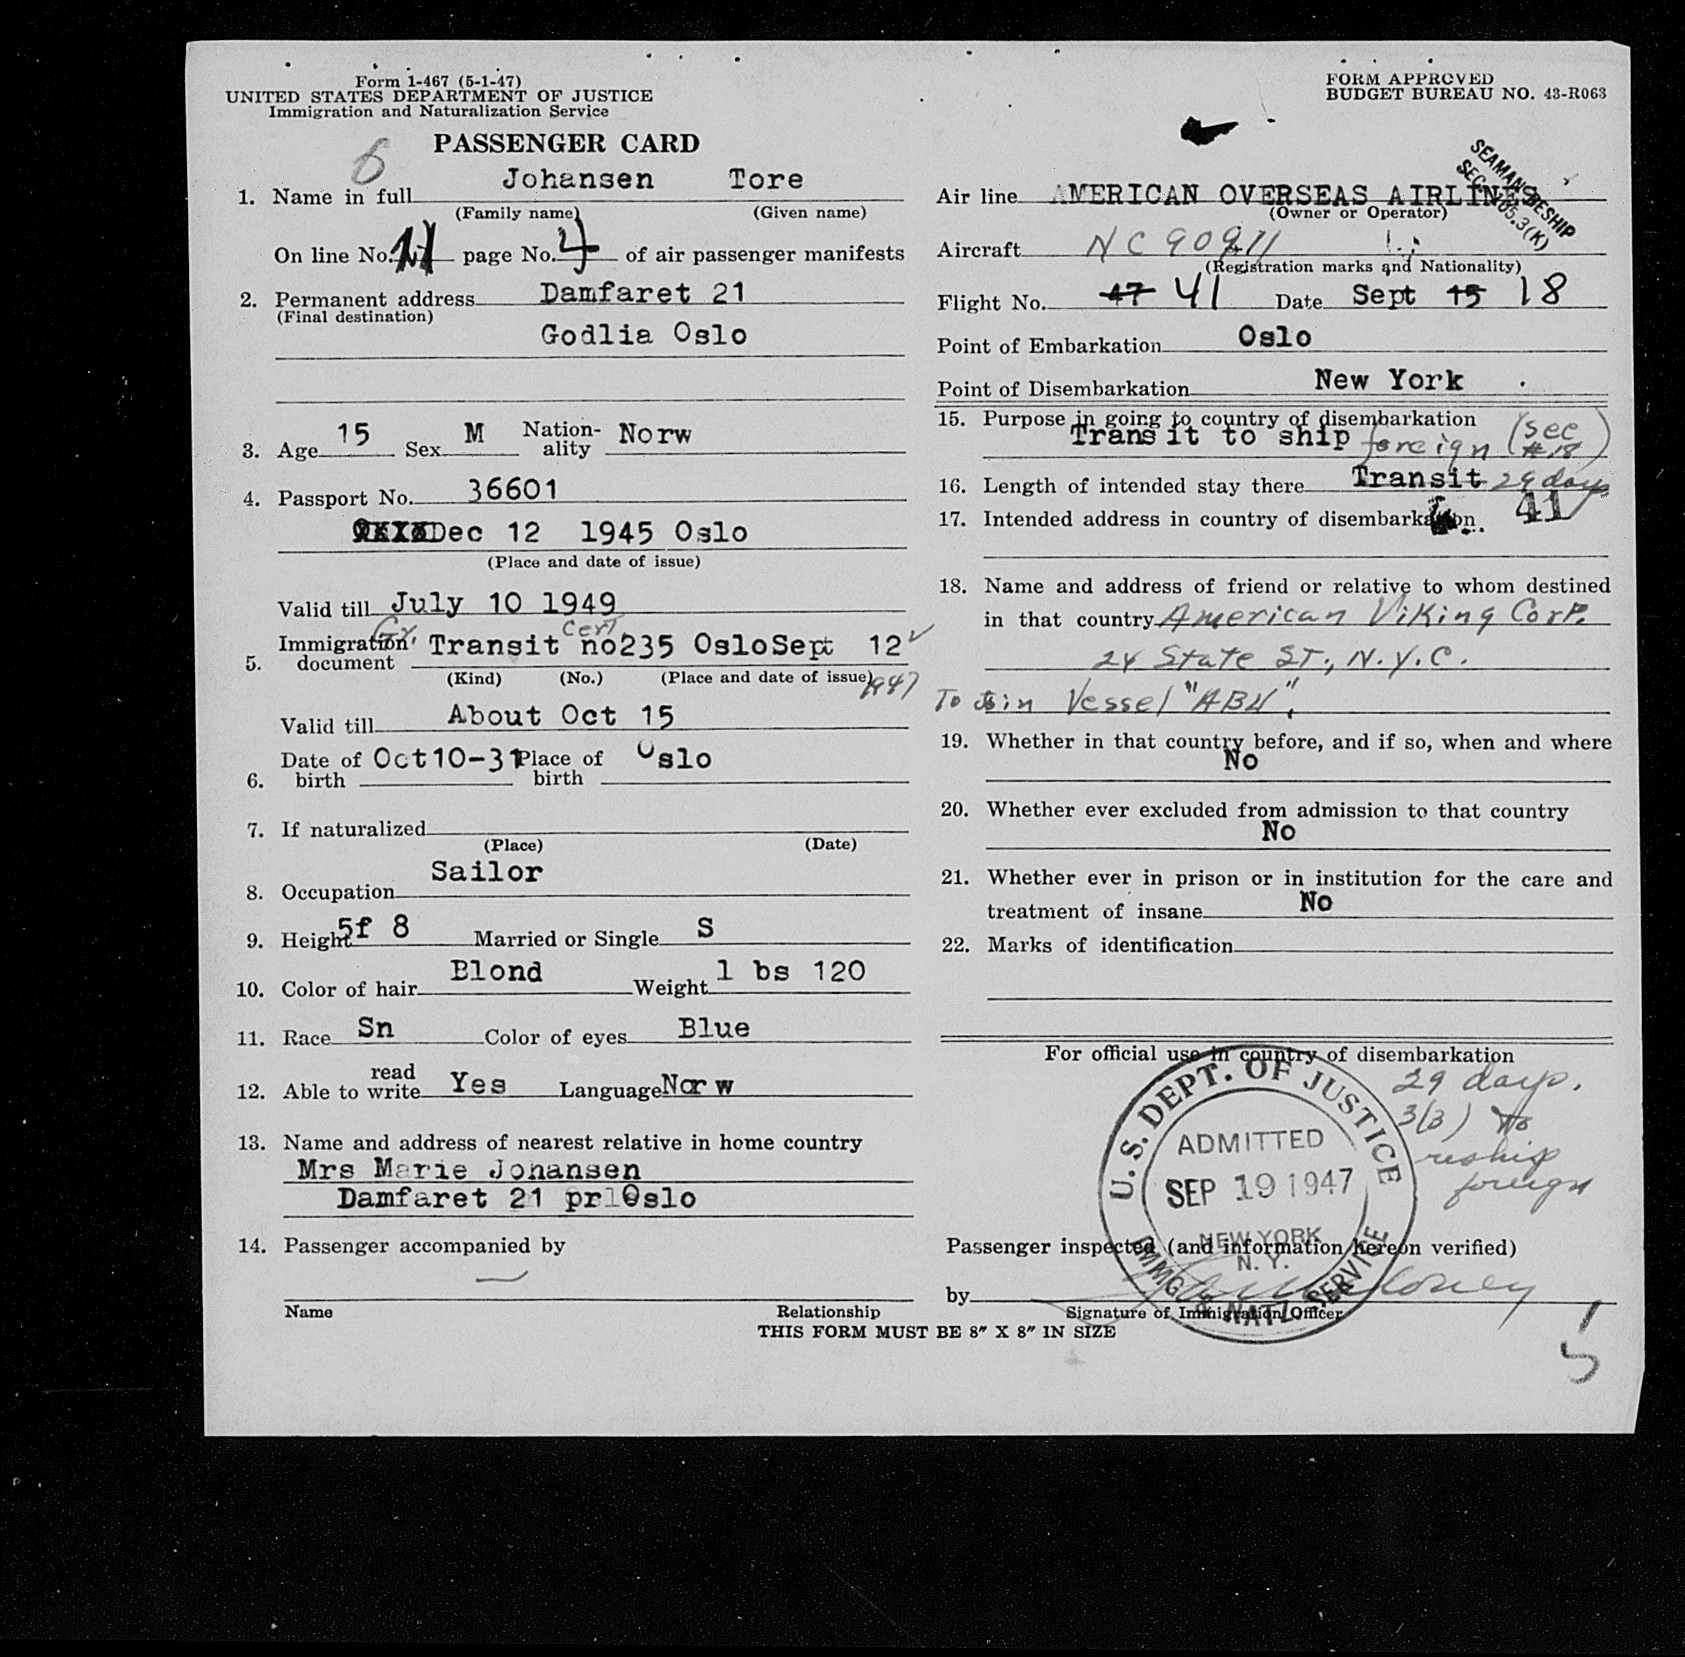 Form 1-467 (5-1-47)
UNITED STATES DEPARTMENT OF JUSTICE
Immigration and Naturalization Service
PASSENGER CARD
6
1. Name in full Johansen Tore
(Family name) (Given name)
On line No. page No. 4 of air passenger manifests
2. Permanent address Damfaret 21
(Final destination)
Godlia Oslo
3. Age 15 Sex M Nation-ality Norw
4. Passport No. 36601
Dec 12 1945 Oslo
(Place and date of issue)
Valid till July 10 1949
5. Immigration document Transit Cert. no235 OsloSept 12 1947
(Kind) (No.) (Place and date of issue)
Valid till About Oct 15
6. Date of birth Oct10-31 Place of birth Oslo
7. If naturalized
(Place) (Date)
8. Occupation Sailor
9. Height 5f 8 Married or Single S
10. Color of hair Blond Weight l bs 120
11. Race Sn Color of eyes Blue
12. Able to read write Yes Language Norw
13. Name and address of nearest relative in home country
Mrs Marie Johansen
Damfaret 21 pr Oslo
14. Passenger accompanied by
—
Name Relationship
THIS FORM MUST BE 8″ X 8″ IN SIZE
FORM APPROVED
BUDGET BUREAU NO. 43-R063
SEAMAN RESHIP
SEC. 105.3(K)
Air line AMERICAN OVERSEAS AIRLINES
(Owner or Operator)
Aircraft NC 90911
(Registration marks and Nationality)
Flight No. 47 41 Date Sept 15 18
Point of Embarkation Oslo
Point of Disembarkation New York
15. Purpose in going to country of disembarkation
Transit to ship foreign (see #18)
16. Length of intended stay there Transit 29 days
17. Intended address in country of disembarkation 41
18. Name and address of friend or relative to whom destined
in that country American Viking Corp.
24 State St., N.Y.C.
To Join Vessel "ABU".
19. Whether in that country before, and if so, when and where
No
20. Whether ever excluded from admission to that country
No
21. Whether ever in prison or in institution for the care and
treatment of insane No
22. Marks of identification
For official use in country of disembarkation
29 days.
3(3) to
reship
foreign
U.S. DEPT. OF JUSTICE
ADMITTED
SEP 19 1947
NEW YORK
N.Y.
IMMIG. & NATZ. SERVICE
Passenger inspected (and information hereon verified)
by
Signature of Immigration Officer